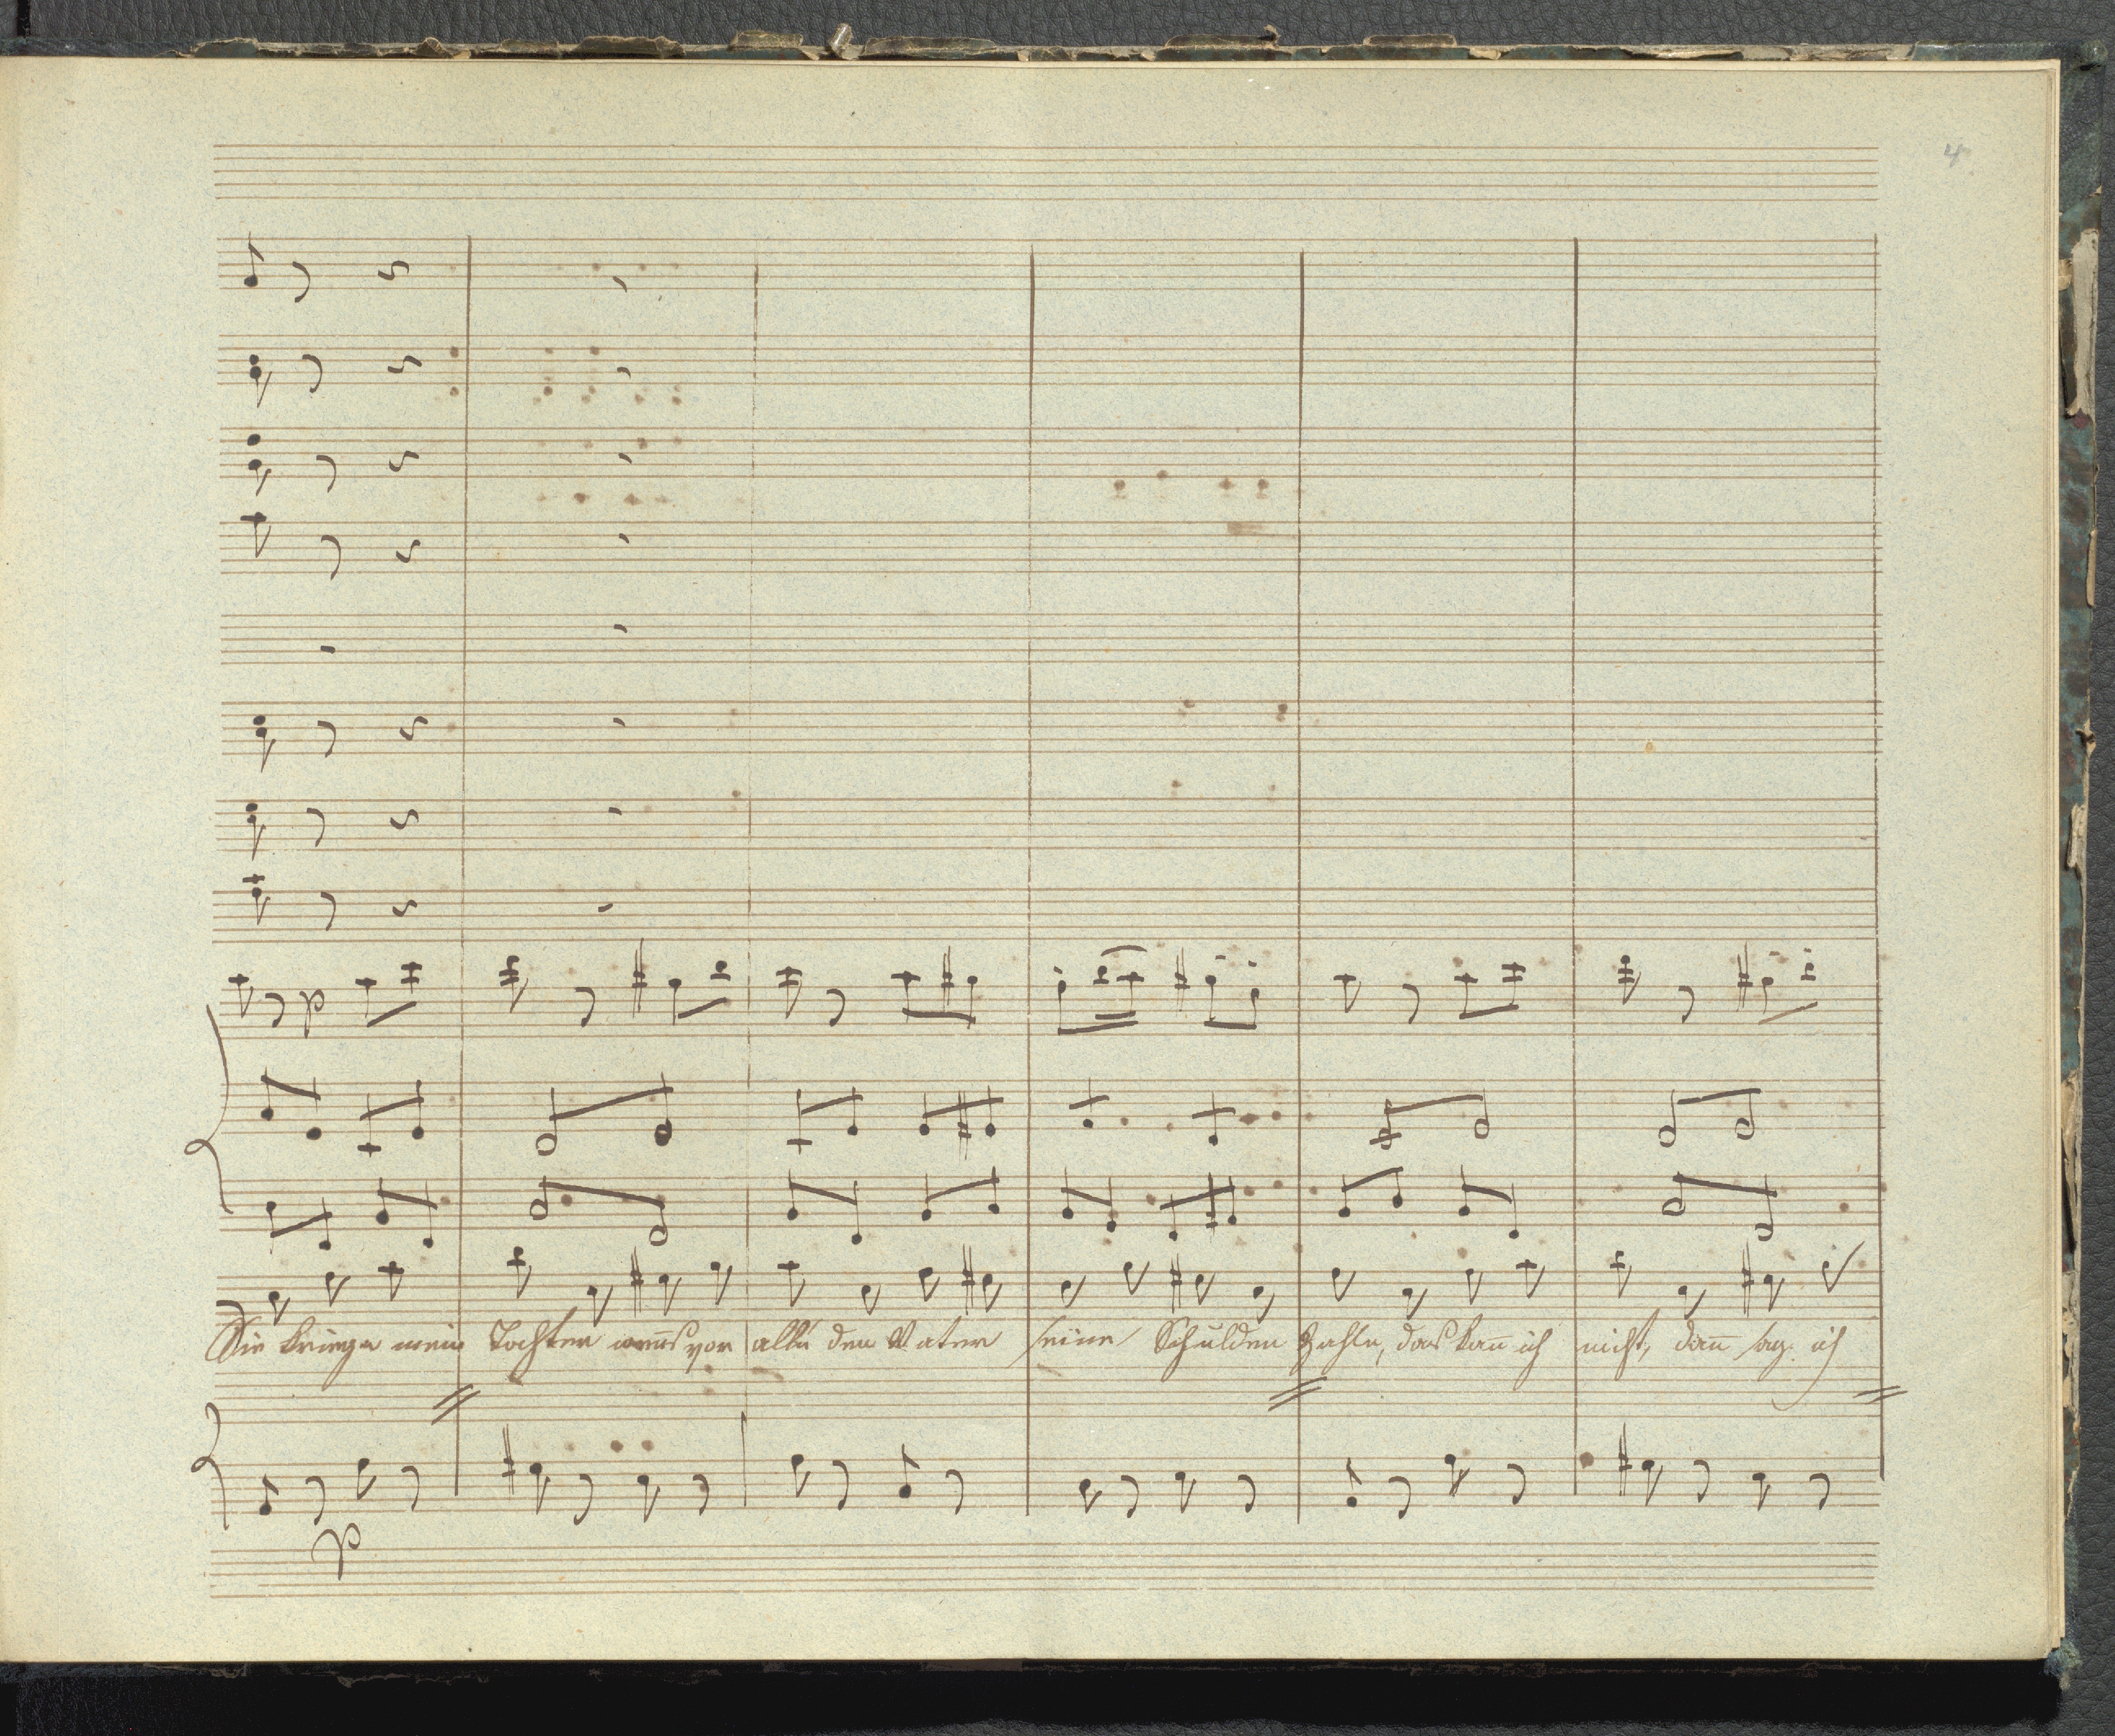 4
p
Sie kriegn mein Tochter wen̄s vor alln den Vater seine Schulden Zahln, das kan̄ ich nicht, dan̄ sag ich
p